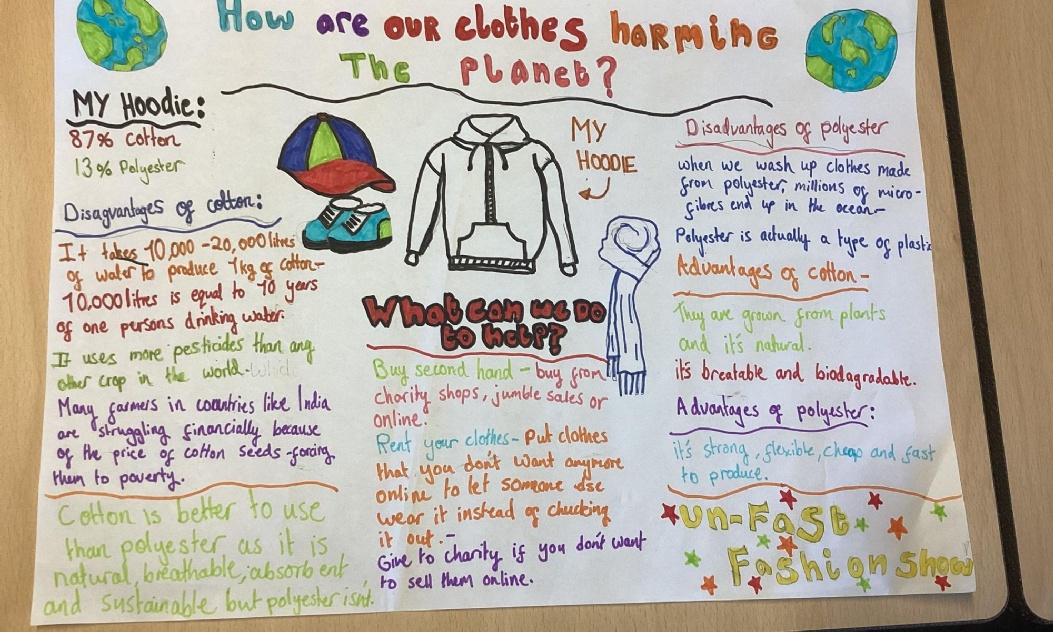 How are our clothes harming
The planet?
MY Hoodie:
87% cotton
13% Polyester
Disagvantages of cotton:
It takes 10,000 - 20,000 litres
of water to produce 1kg of cotton-
10,000 litres is equal to 10 years
of one persons drinking water.
It uses more pesticides than any
other crop in the world.
Many farmers in countries like India
are struggling financially because
of the price of cotton seeds - forcing
them to poverty.
Cotton is better to use
than polyester as it is
natural, breathable, absorbent
and sustainable but polyester isnt.
MY
HOODIE
What can we do
to help??
Buy second hand - buy from
charity shops, jumble sales or
online.
Rent your clothes - Put clothes
that you don't want anymore
online to let someone else
wear it instead of chucking
it out.-
Give to charity if you don't want
to sell them online.
Disadvantages of polyester
when we wash up clothes made
from polyester, millions of micro-
fibres end up in the ocean-
Polyester is actually a type of plastic
Advantages of cotton-
They are grown from plants
and it's natural.
it's breatable and biodagradable.
Advantages of polyester:
it's strong, flexible, cheap and fast
to produce.
un-Fast
Fashion Show